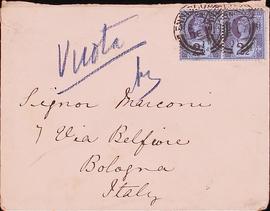 Vuota
Signor Marconi
7 Via Belfiore
Bologna
Italy